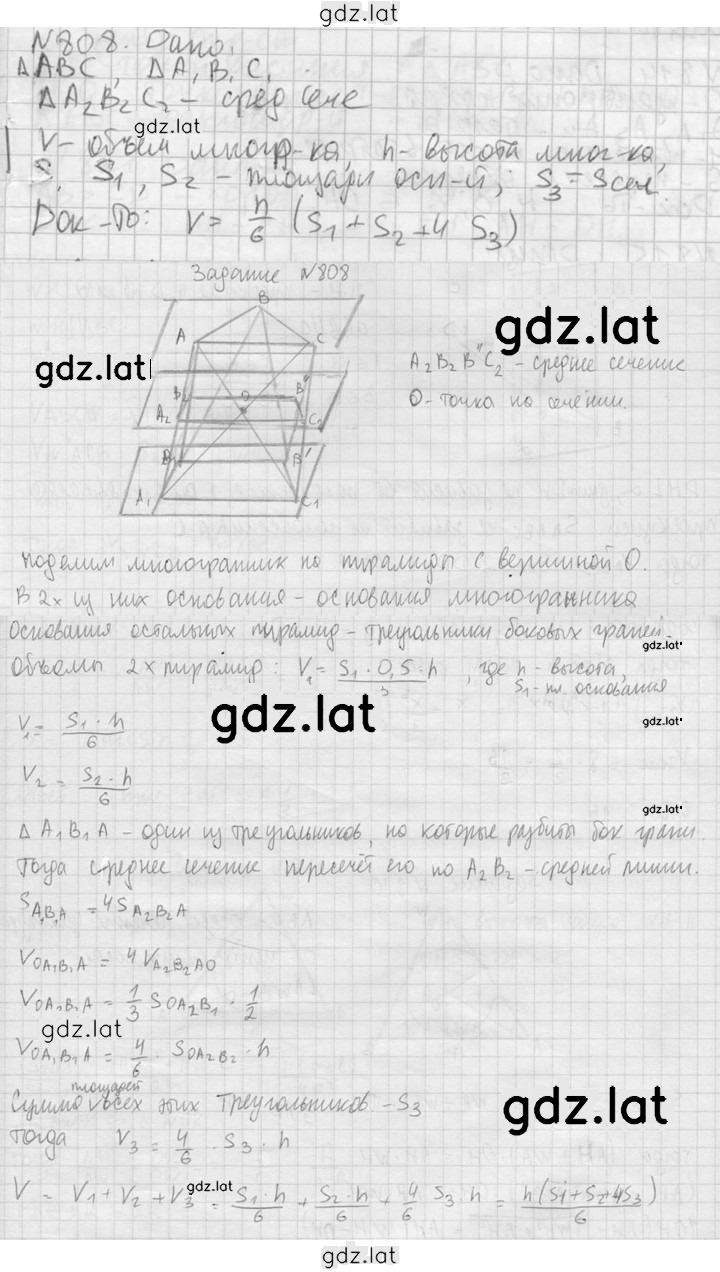 gdz.lat
N808. Дано:
△ABC, △A₁B₁C₁
△A₂B₂C₂ – сред сече
gdz.lat
V – объем многогр-ка, h – высота мног-ка,
S, S₁, S₂ – площади осн-й; S₃ = Sсеч
Док-ть: V = h/6 (S₁ + S₂ + 4 S₃)
Задание N808
B
A C
gdz.lat
gdz.lat
B₂ O B"
A₂ C₂
B₁ B'
A₁ C₁
A₂B₂B"C₂ – среднее сечение
O – точка на сечении.
Поделим многогранник на пирамиды с вершиной O.
В 2х из них основания – основания многогранника
Основания остальных пирамид – треугольники боковых граней.
gdz.lat
Объемы 2х пирамид: V₁ = S₁ · 0,5 · h / 3, где h – высота,
S₁ – пл. основания
gdz.lat
gdz.lat
V₁ = S₁ · h / 6
V₂ = S₂ · h / 6
gdz.lat
△A₁B₁A – один из треугольников, на которые разбиты бок грани.
Тогда среднее сечение пересечёт его по A₂B₂ – средней линии.
S A₁B₁A = 4 S A₂B₂A
V OA₁B₁A = 4 V A₂B₂AO
V OA₁B₁A = 1/3 S OA₂B₁ · 1/2
gdz.lat
V OA₁B₁A = 4/6 · S OA₂B₂ · h
Сумма площадей всех этих треугольников – S₃
gdz.lat
Тогда V₃ = 4/6 · S₃ · h
V = V₁ + V₂ + V₃ = S₁ · h / 6 + S₂ · h / 6 + 4/6 S₃ h = h(S₁ + S₂ + 4S₃) / 6
gdz.lat
gdz.lat